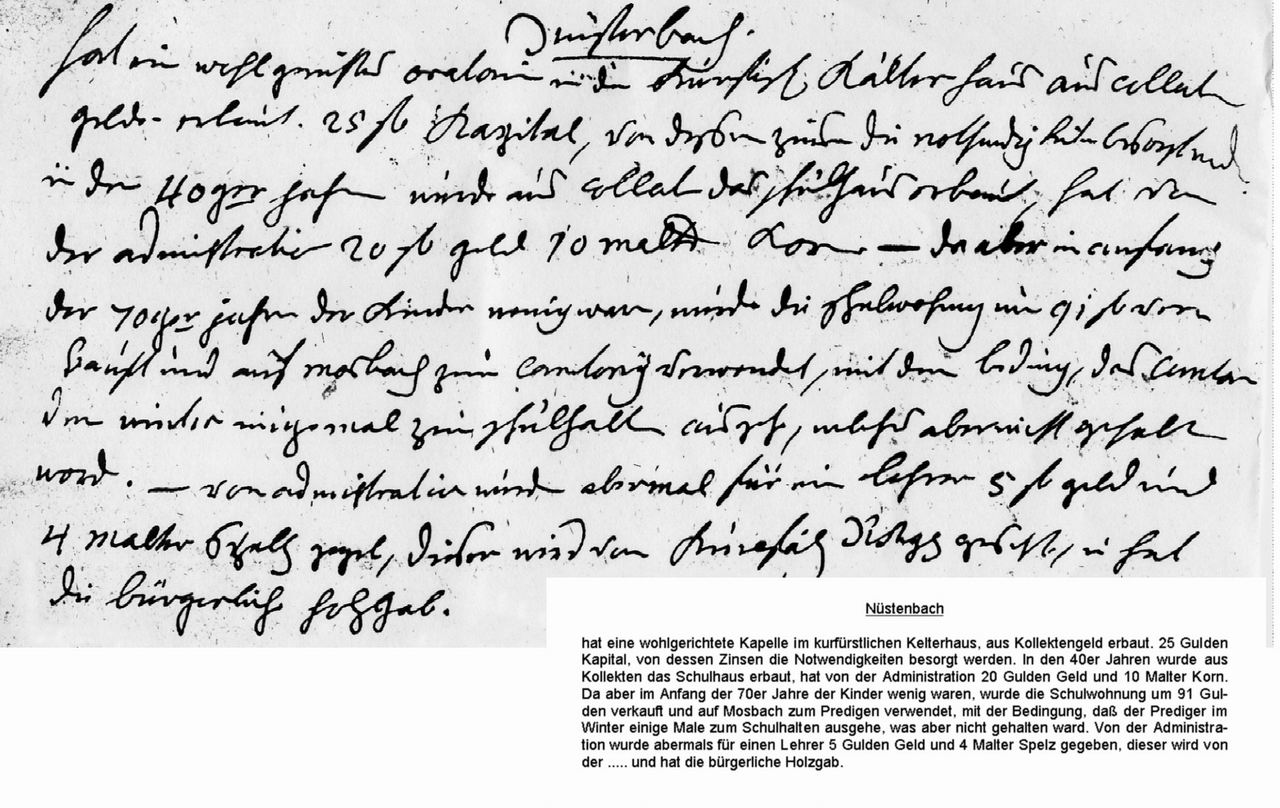 Nüstenbach.
hat ein oratorium Kälterhaus aus collecten
geld erbaut. 25 fl Kapital, von dessen zinsen die
in den 40ger jahren wurde aus collect das schulhaus erbaut, hat von
der administration 20 fl geld 10 malter Korn — da aber im anfang
der 70ger jahre der Kinder wenig waren, wurde die schulwohnung um 91 fl ver
kauft und auf mosbach zum verwendet, mit dem beding, das
den winter einigemal zum schulhalten, welches aber nicht gehalten
word. — von administration wurde abermal für ein lehrer 5 fl geld und
4 malter Spelz gegeb, dieser wird von hat
die bürgerliche holzgab.
Nüstenbach
hat eine wohlgerichtete Kapelle im kurfürstlichen Kelterhaus, aus Kollektengeld erbaut. 25 Gulden
Kapital, von dessen Zinsen die Notwendigkeiten besorgt werden. In den 40er Jahren wurde aus
Kollekten das Schulhaus erbaut, hat von der Administration 20 Gulden Geld und 10 Malter Korn.
Da aber im Anfang der 70er Jahre der Kinder wenig waren, wurde die Schulwohnung um 91 Gul-
den verkauft und auf Mosbach zum Predigen verwendet, mit der Bedingung, daß der Prediger im
Winter einige Male zum Schulhalten ausgehe, was aber nicht gehalten ward. Von der Administra-
tion wurde abermals für einen Lehrer 5 Gulden Geld und 4 Malter Spelz gegeben, dieser wird von
der ..... und hat die bürgerliche Holzgab.